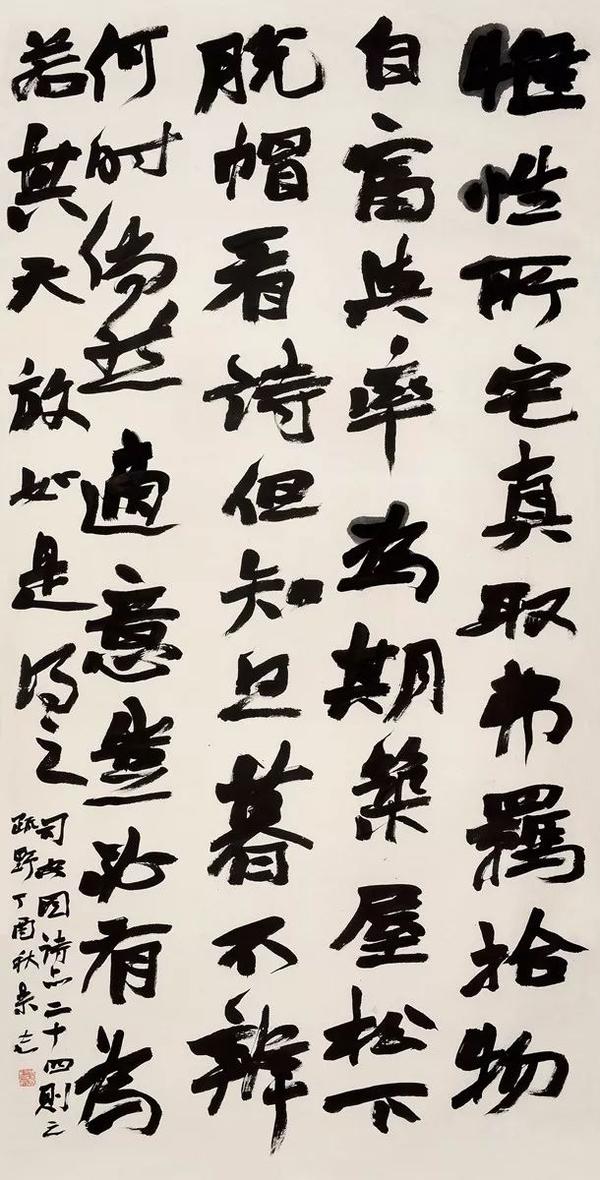 惟性所宅真取弗羈拾物
自富與率為期築屋松下
脱帽看詩但知旦暮不辨
何时倘然適意豈必有為
若其天放如是得之
司空図诗品二十四則之
疏野丁酉秋